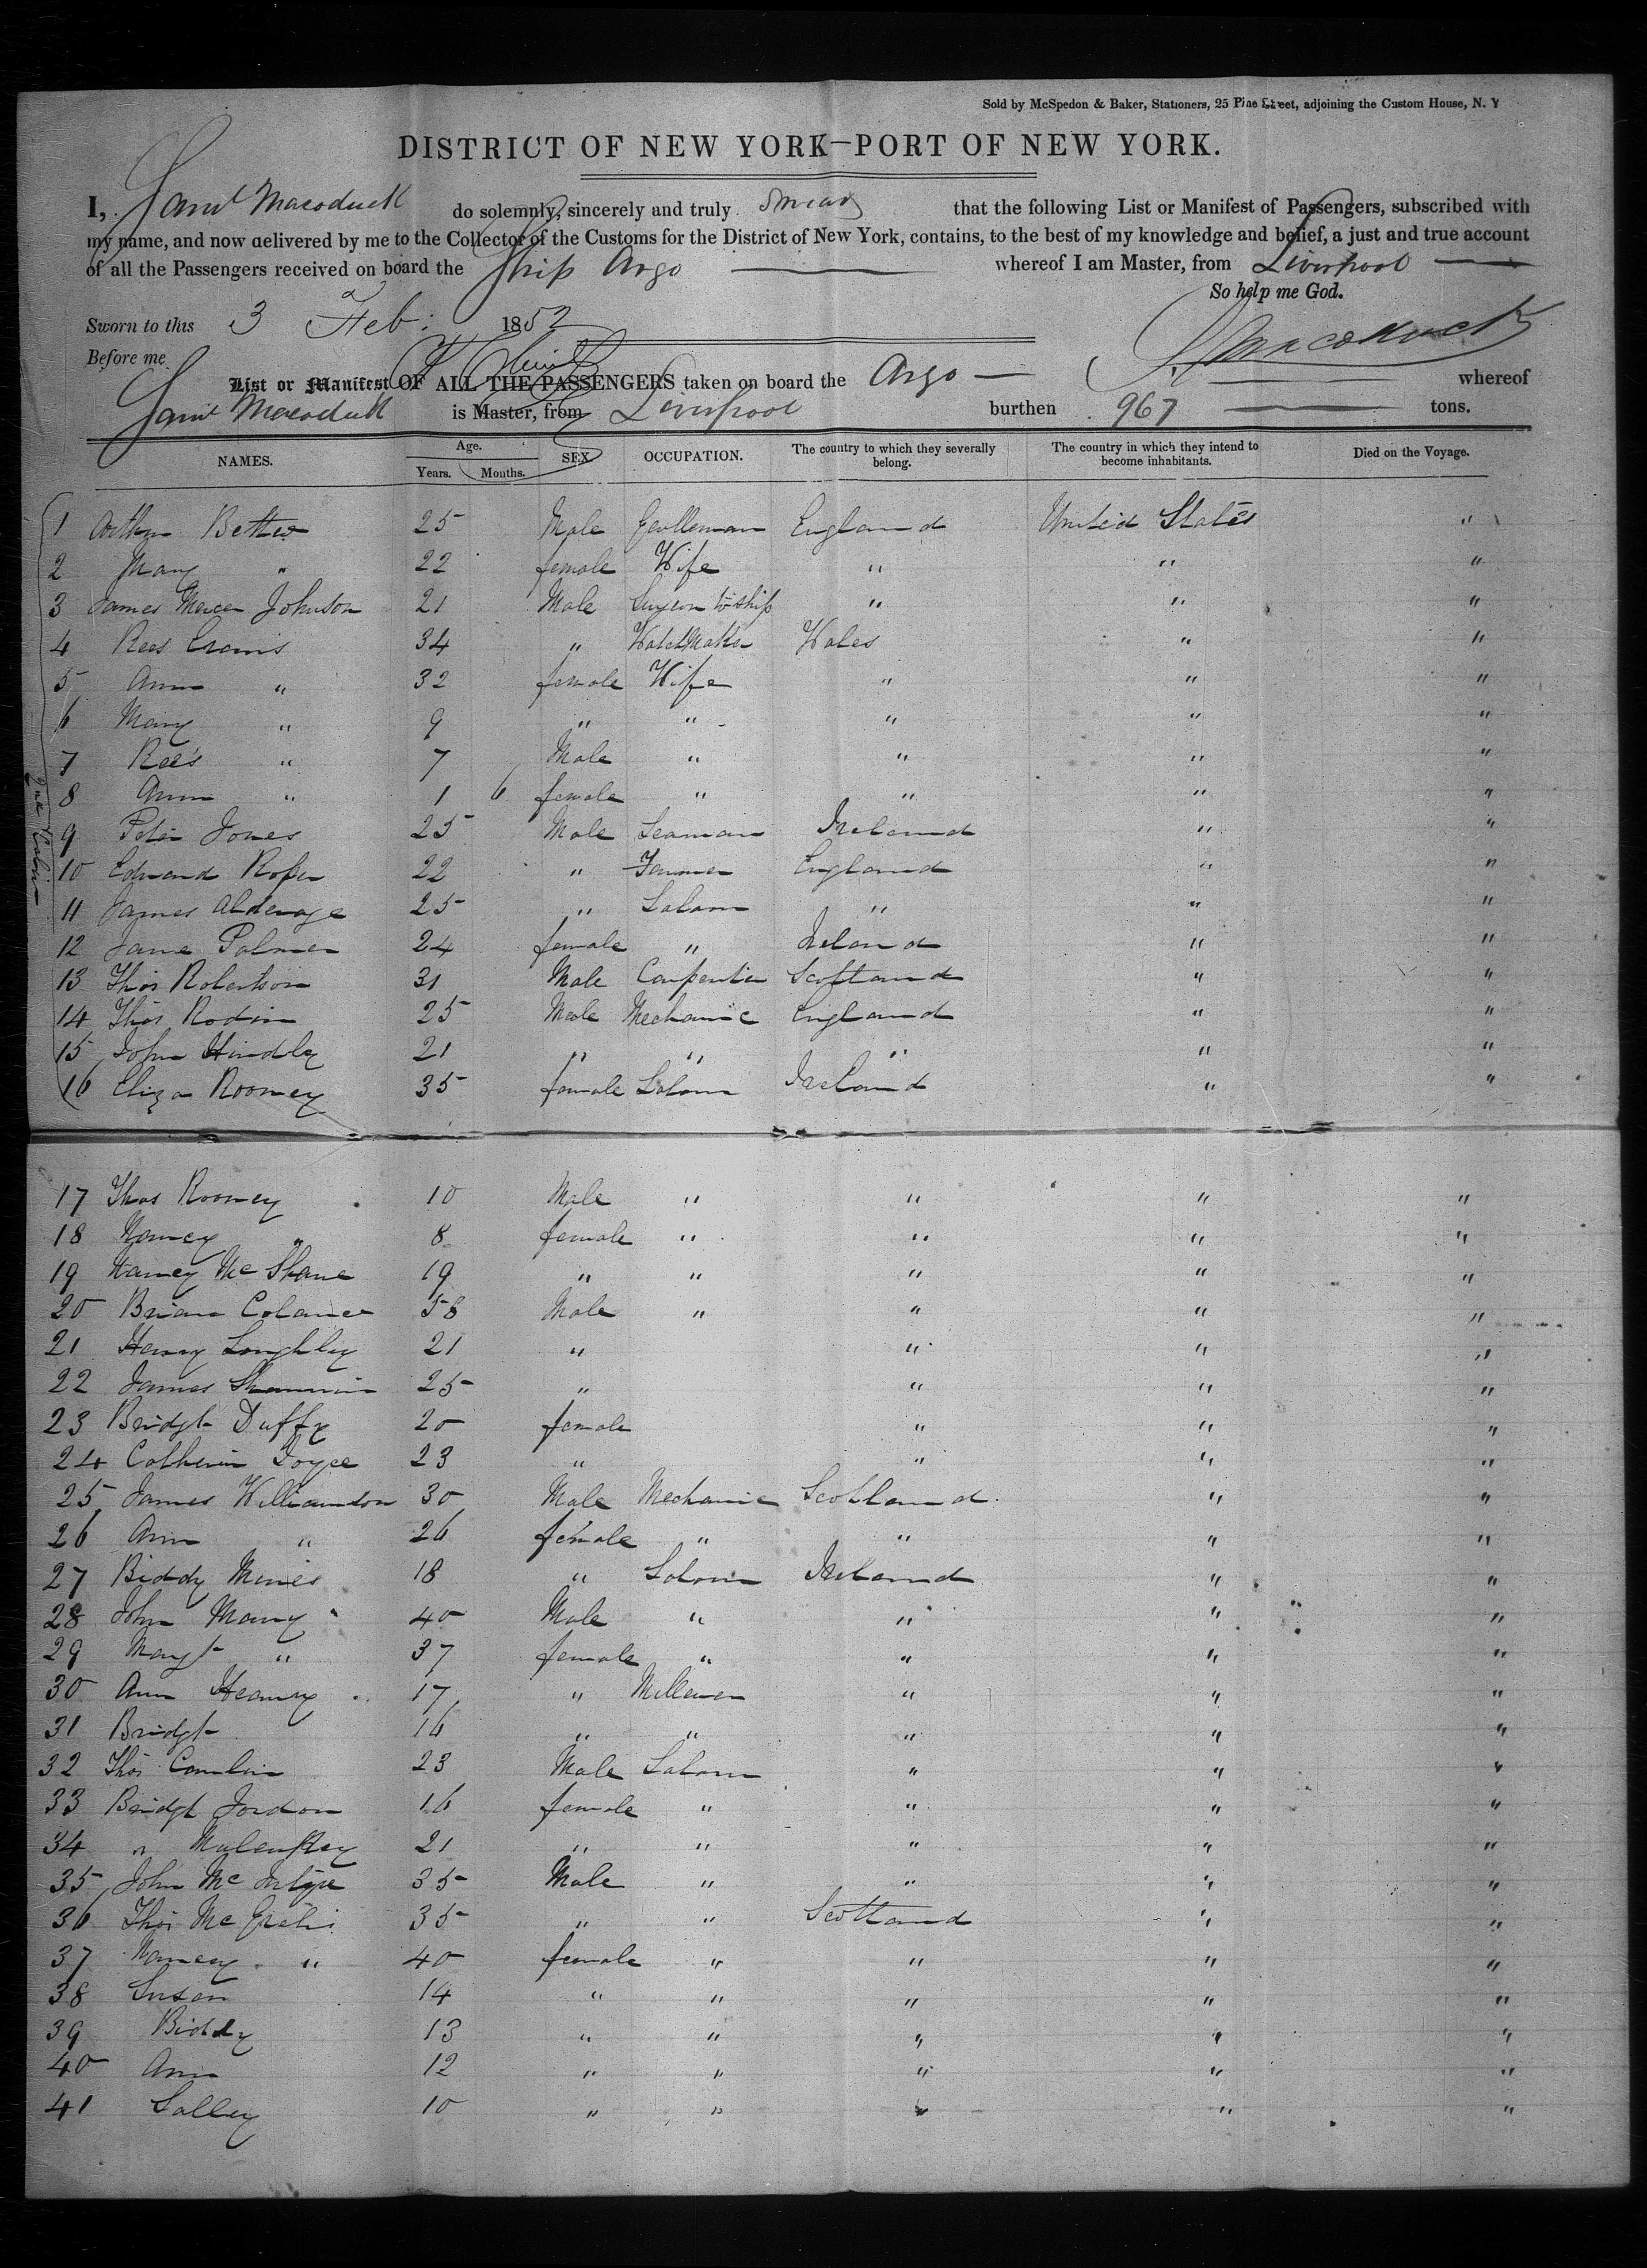 Sold by McSpedon & Baker, Stationers, 25 Pine Street, adjoining the Custom House, N. Y
DISTRICT OF NEW YORK—PORT OF NEW YORK.
I, Saml Macoduck do solemnly, sincerely and truly swear that the following List or Manifest of Passengers, subscribed with
my name, and now delivered by me to the Collector of the Customs for the District of New York, contains, to the best of my knowledge and belief, a just and true account
of all the Passengers received on board the Ship Argo whereof I am Master, from Liverpool
So help me God.
Sworn to this 3 Feb: 1852
Before me
List or Manifest OF ALL THE PASSENGERS taken on board the Argo — whereof
Saml Macoduck is Master, from Liverpool burthen 967 tons.
NAMES. Age. Years. Months. SEX. OCCUPATION. The country to which they severally belong. The country in which they intend to become inhabitants. Died on the Voyage.
1 Arthur 25 Male Gentleman England United States "
2 Mary " 22 female Wife " " "
3 James Mercer Johnson 21 Male Surgeon to ship " " "
4 Rees 34 " WatchMaker Wales " "
5 Ann " 32 female Wife " " "
6 Mary " 9 " " " " "
7 Rees " 7 Male " " " "
8 Ann " 1 6 female " " " "
9 Peter Jones 25 Male Seaman Ireland " "
10 Edward Roper 22 " Farmer England " "
11 James 25 " Labour " " "
12 Jane Palmer 24 female " Ireland " "
13 Thos Robertson 31 Male Carpenter Scotland " "
14 Thos Rodin 25 Male Mechanic England " "
15 John Hindly 21 " " " " "
16 Eliza Rooney 35 female Labour Ireland " "
17 Thos Rooney 10 Male " " " "
18 Nancy " 8 female " " " "
19 Nancy Mc Shane 19 " " " " "
20 Brian 58 Male " " " "
21 Henry Loughley 21 " " " "
22 James 25 " " " "
23 Bridgt Duffy 20 female " " "
24 Catherin Joyce 23 " " " "
25 James Williamson 30 Male Mechanic Scotland " "
26 Ann " 26 female " " " "
27 Biddy 18 " Labour Ireland " "
28 John 40 Male " " " "
29 Margt " 37 female " " " "
30 Ann 17 " " " "
31 Bridgt 16 " " " " "
32 Thos 23 Male Labour " " "
33 Bridgt Jordon 16 female " " " "
34 " 21 " " " " "
35 John Mc Intyre 35 Male " " " "
36 Thos 35 " " Scotland " "
37 Nancy " 40 female " " " "
38 Susan 14 " " " " "
39 Biddy 13 " " " " "
40 Ann 12 " " " " "
41 Salley 10 " " " " "